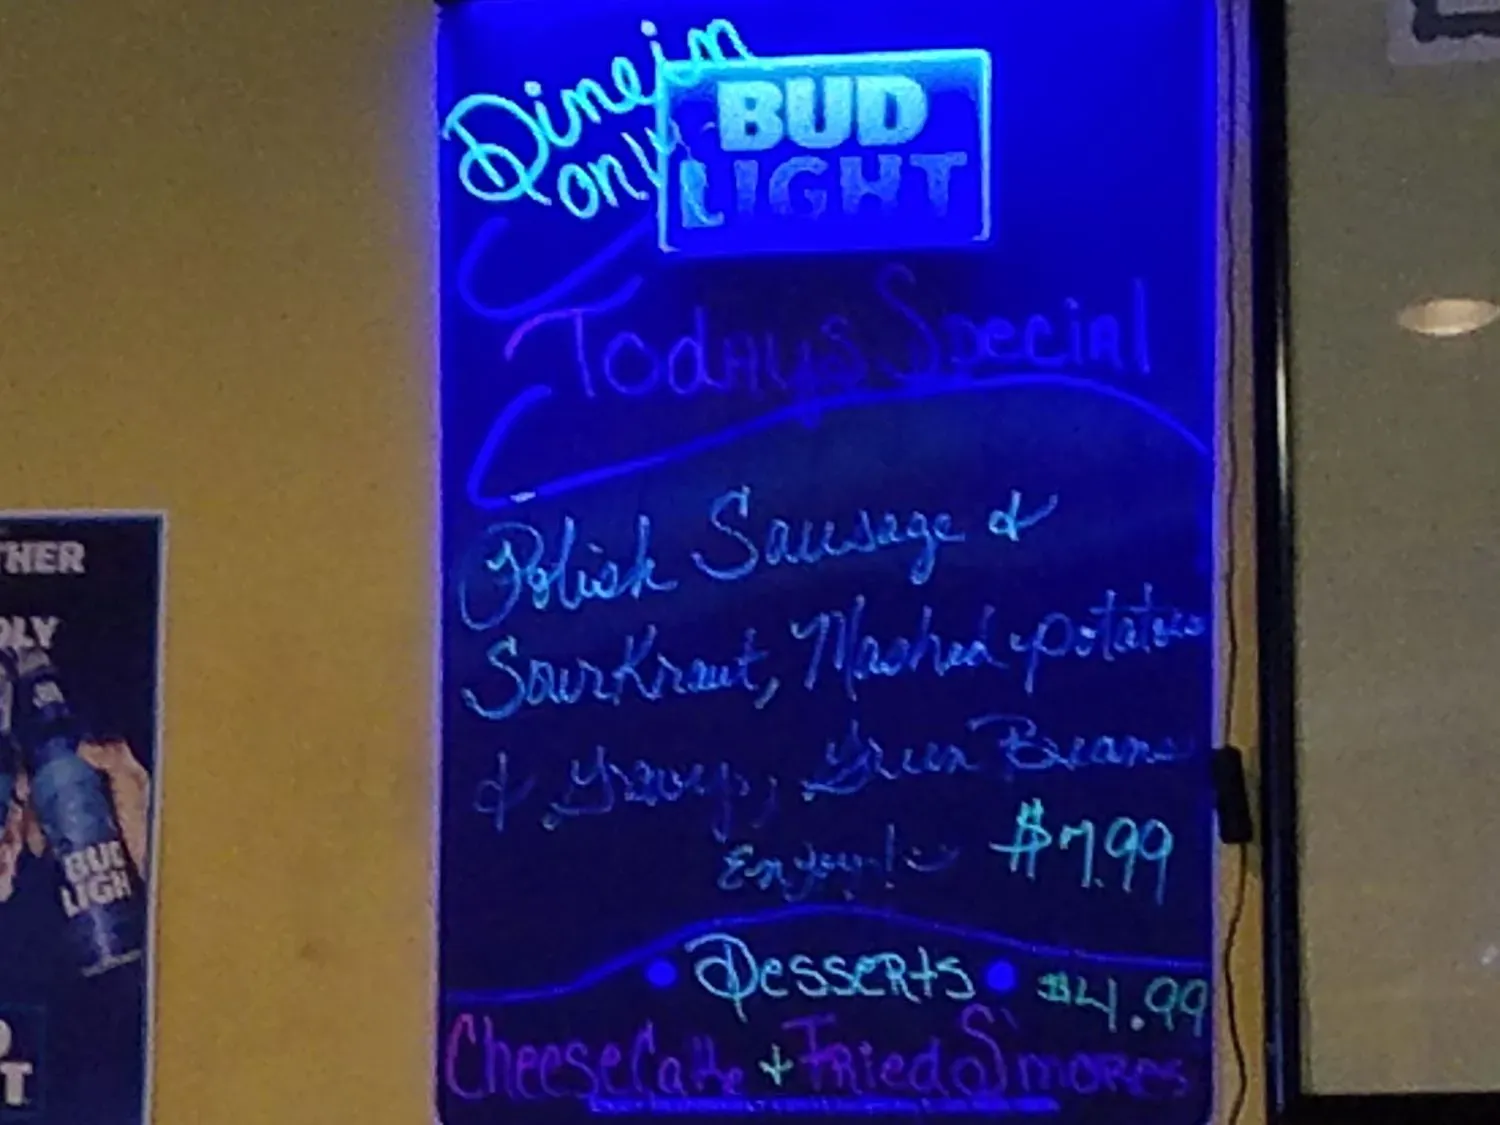 Dine in
only
BUD
LIGHT
Todays Special
Polish Sausage &
SourKraut, Mashed potatoes
& Gravy, Green Beans
Enjoy!
$7.99
Desserts $4.99
CheeseCake + Fried S'mores
THER
BUD
LIGH